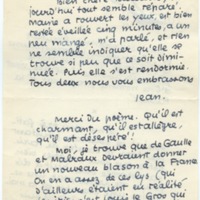 jourd'hui tout semble réparé.
Marie a rouvert les yeux, est bien
restée éveillée cinq minutes, a un
peu mangé, m'a parlé, et rien
ne semble indiquer qu'elle se
trouve si peu que ce soit dimi-
nuée. Puis elle s'est rendormie.
Tous deux nous vous embrassons
Jean.
Merci du poème. Qu'il est
charmant, qu'il est allègre,
qu'il est
Moi, je trouve que de Gaulle
et Malraux devraient donner
un nouveau blason à la France
On en a assez de ces lys (qui
d'ailleurs étaient en réalité
Louis le Gros qui